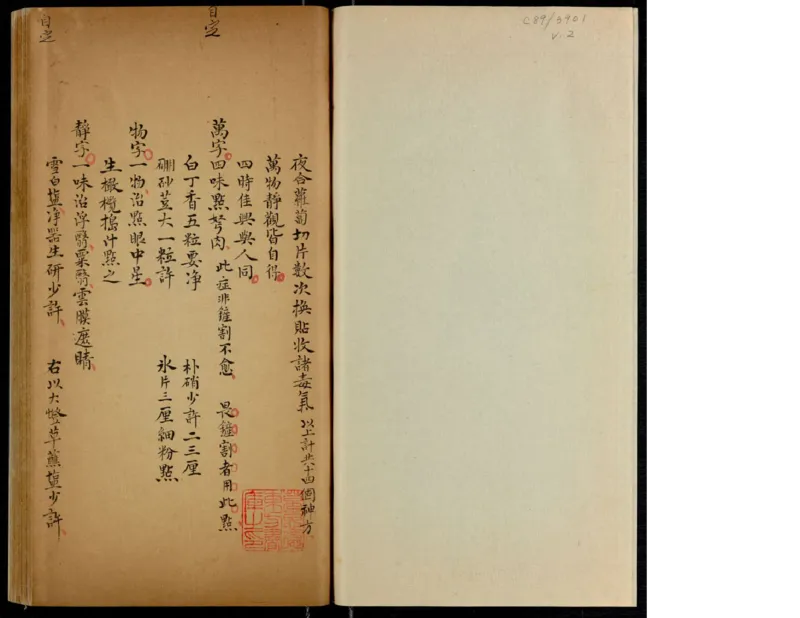 C89/3901
v.2
夜合蘿蔔切片數次換貼收諸毒氣 以上計共十四個神方
萬物靜觀皆自得
四時佳興與人同
萬字四味點弩肉 此症非鐮割不愈 畏鐮割者用此點
白丁香五粒要凈 朴硝少許二三厘
硼砂荳大一粒許 氷片三厘細粉點
物字一物治點眼中星
生橄欖搗汁點之
靜字一味治浮翳粟翳雲膜遮睛
雪白塩净器生研少許 右以大燈草蘸塩少許